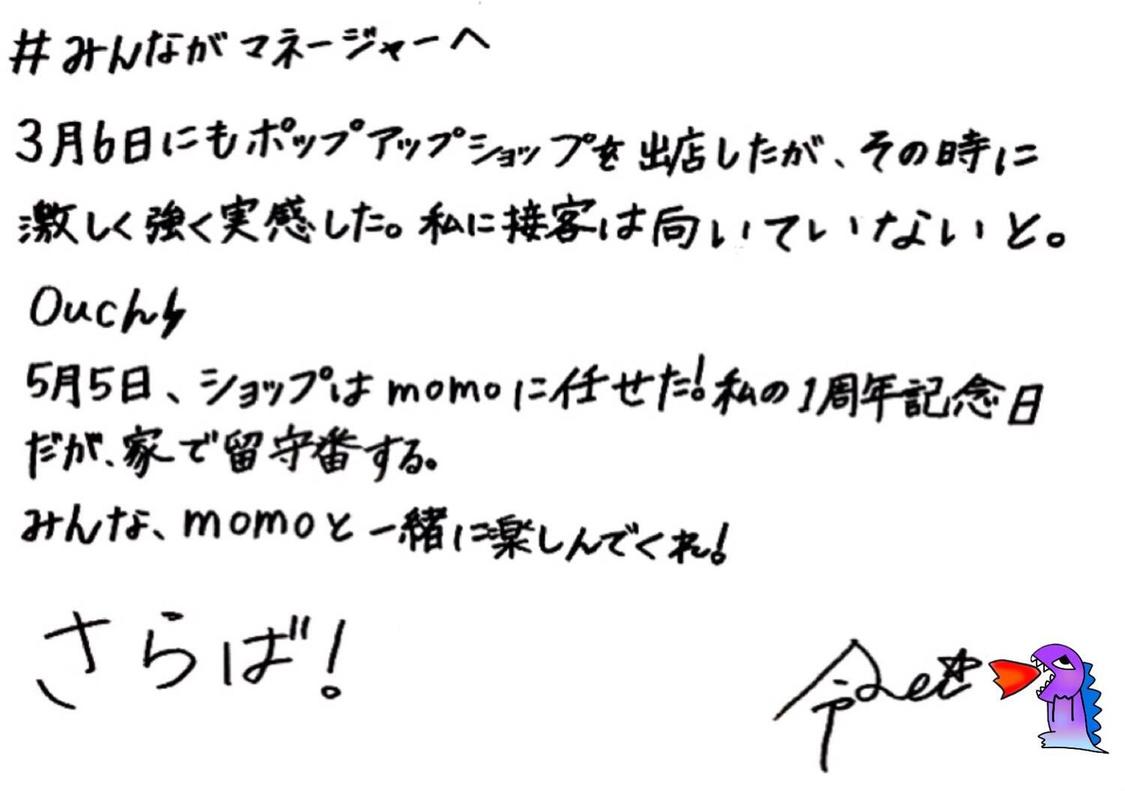 #みんながマネージャーへ
3月6日にもポップアップショップを出店したが、その時に
激しく強く実感した。私に接客は向いていないと。
Ouch
5月5日、ショップはmomoに任せた!私の1周年記念日
だが、家で留守番する。
みんな、momoと一緒に楽しんでくれ!
さらば!